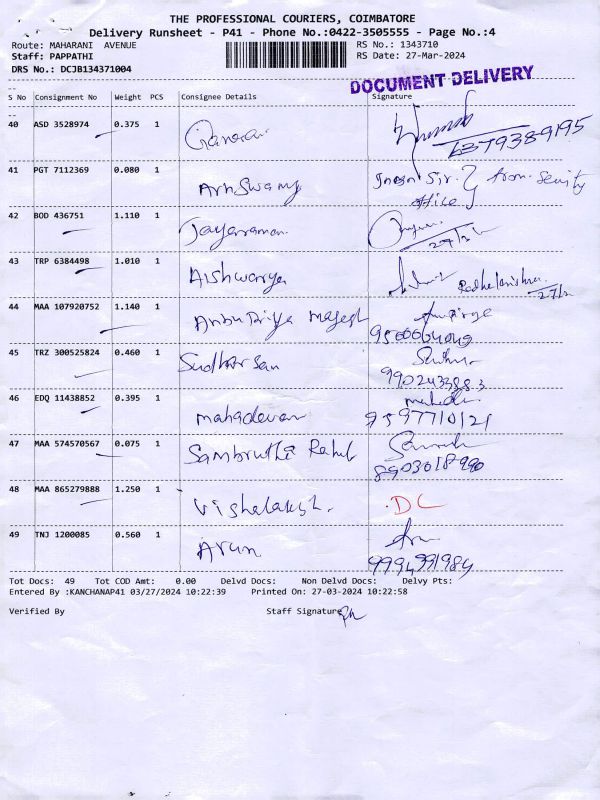 THE PROFESSIONAL COURIERS, COIMBATORE
Delivery Runsheet - P41 - Phone No.:0422-3505555 - Page No.:4
Route: MAHARANI AVENUE RS No.: 1343710
Staff: PAPPATHI RS Date: 27-Mar-2024
DRS No.: DCJB134371004
DOCUMENT DELIVERY
S No Consignment No Weight PCS Consignee Details Signature
40 ASD 3528974 0.375 1
6379389195
41 PGT 7112369 0.080 1 office
42 BOD 436751 1.110 1 Jayaraman
43 TRP 6384498 1.010 1 Aishwarya
44 MAA 107920752 1.140 1 Anbu Priya Magesh
45 TRZ 300525824 0.460 1 Sudharsan
9902433883
46 EDQ 11438852 0.395 1 mahadevan
9597710121
47 MAA 574570567 0.075 1 Sambruthi Rahul
48 MAA 865279888 1.250 1 Vishalaksh. DC
49 TNJ 1200085 0.560 1 Arun
9994991984
Tot Docs: 49 Tot COD Amt: 0.00 Delvd Docs: Non Delvd Docs: Delvy Pts:
Entered By :KANCHANAP41 03/27/2024 10:22:39 Printed On: 27-03-2024 10:22:58
Verified By Staff Signature